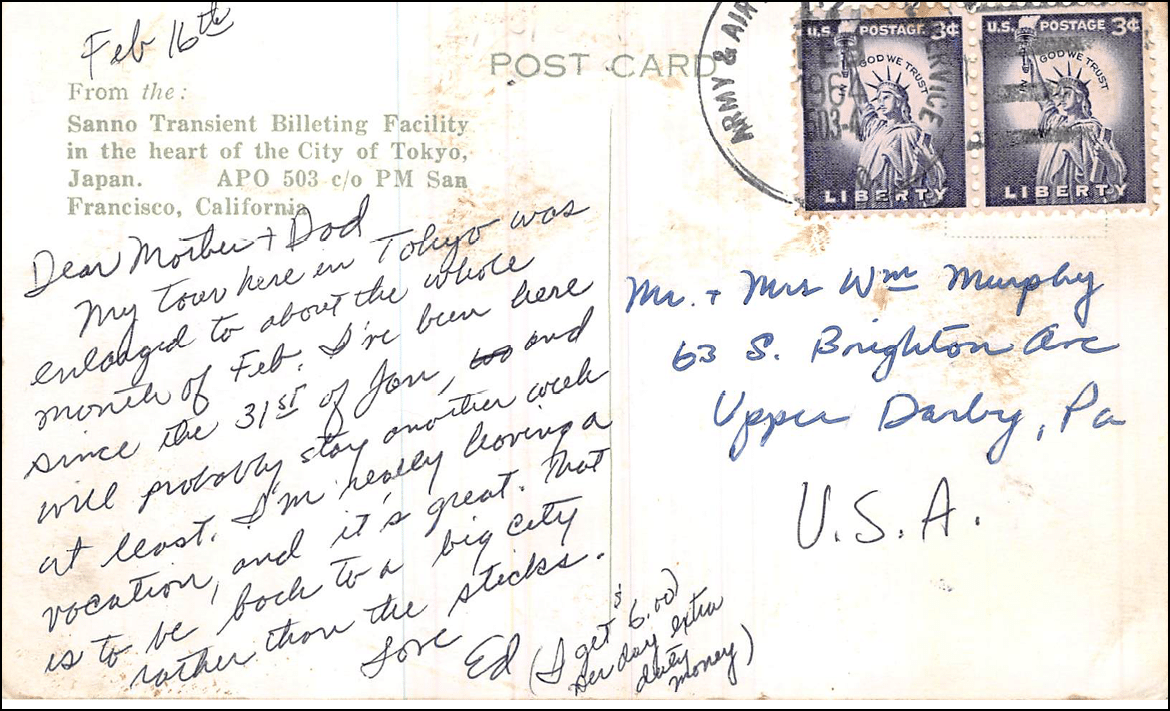 Feb 16th
POST CARD
From the:
Sanno Transient Billeting Facility
in the heart of the City of Tokyo,
Japan. APO 503 c/o PM San
Francisco, California
Dear Mother + Dad
My tour here in Tokyo was
enlarged to about the whole
month of Feb. I've been here
since the 31st of Jan, and
will probably stay another week
at least. I'm really having a
vacation, and it's great. That
is to be back to a big city
rather than the sticks.
Love
Ed (I get $6.00
per day extra
duty
money)
ARMY & AIR
SERVICE
1964
503-4
U.S. POSTAGE 3¢
IN GOD WE TRUST
LIBERTY
U.S. POSTAGE 3¢
IN GOD WE TRUST
LIBERTY
Mr. + Mrs Wm Murphy
63 S. Brighton Ave
Upper Darby, Pa
U.S.A.